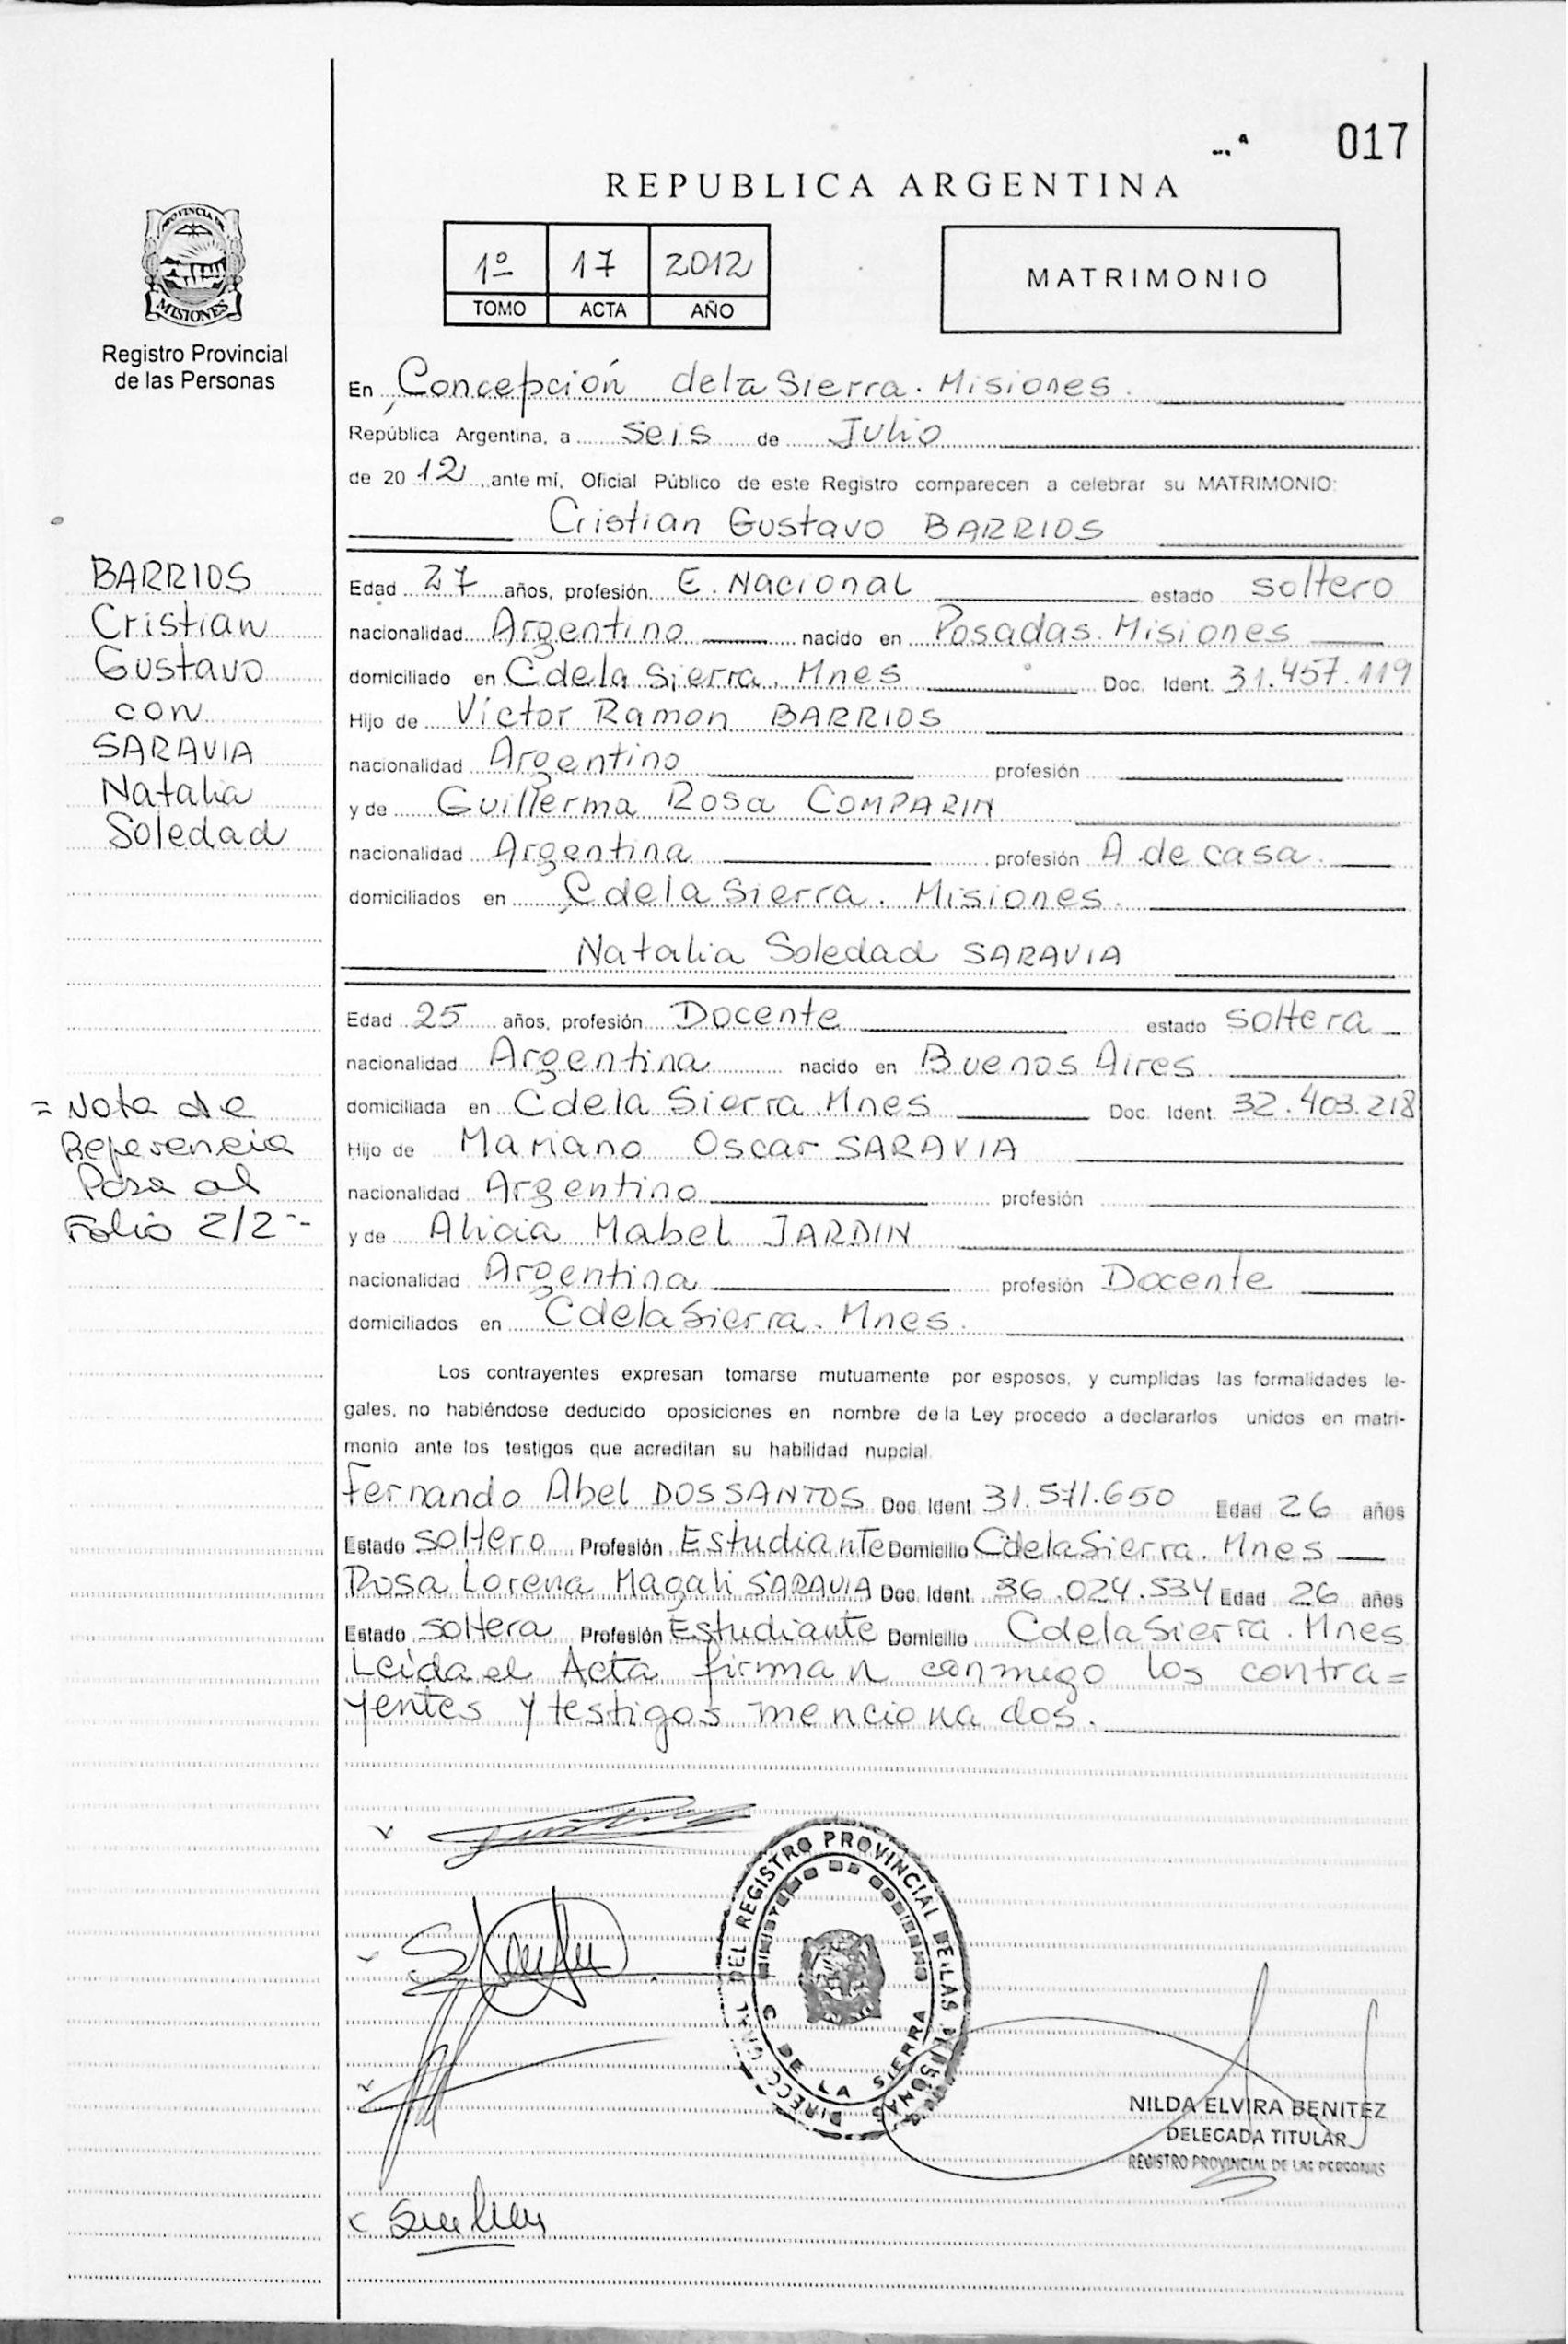 017
REPUBLICA ARGENTINA
1º 17 2012
TOMO ACTA AÑO
MATRIMONIO
PROVINCIA DE
MISIONES
Registro Provincial
de las Personas
En Concepción de la Sierra. Misiones.
República Argentina, a Seis de Julio
de 20 12, ante mí, Oficial Público de este Registro comparecen a celebrar su MATRIMONIO:
Cristian Gustavo BARRIOS
Edad 27 años, profesión E. Nacional estado soltero
nacionalidad Argentino nacido en Posadas. Misiones
domiciliado en C de la Sierra. Mnes Doc. Ident. 31.457.119
Hijo de Victor Ramon BARRIOS
nacionalidad Argentino profesión
y de Guillerma Rosa COMPARIN
nacionalidad Argentina profesión A. de casa.
domiciliados en C de la Sierra. Misiones.
Natalia Soledad SARAVIA
Edad 25 años, profesión Docente estado soltera
nacionalidad Argentina nacido en Buenos Aires
domiciliada en C de la Sierra. Mnes Doc. Ident. 32.403.218
Hijo de Mariano Oscar SARAVIA
nacionalidad Argentino profesión
y de Alicia Mabel JARDIN
nacionalidad Argentina profesión Docente
domiciliados en C de la Sierra. Mnes.
Los contrayentes expresan tomarse mutuamente por esposos, y cumplidas las formalidades le-
gales, no habiéndose deducido oposiciones en nombre de la Ley procedo a declararlos unidos en matri-
monio ante los testigos que acreditan su habilidad nupcial.
Fernando Abel DOS SANTOS Doc. Ident. 31.571.650 Edad 26 años
Estado soltero Profesión Estudiante Domicilio C de la Sierra. Mnes
Rosa Lorena Magali SARAVIA Doc. Ident. 36.024.534 Edad 26 años
Estado soltera Profesión Estudiante Domicilio C de la Sierra. Mnes
Leída el Acta firman conmigo los contra=
yentes y testigos mencionados.
BARRIOS
Cristian
Gustavo
con
SARAVIA
Natalia
Soledad
= Nota de
Referencia
Pasa al
Folio 2/2 --
DEL REGISTRO PROVINCIAL DE LAS PERSONAS
MINISTERIO DE GOBIERNO
C DE LA SIERRA
NILDA ELVIRA BENITEZ
DELEGADA TITULAR
REGISTRO PROVINCIAL DE LAS PERSONAS